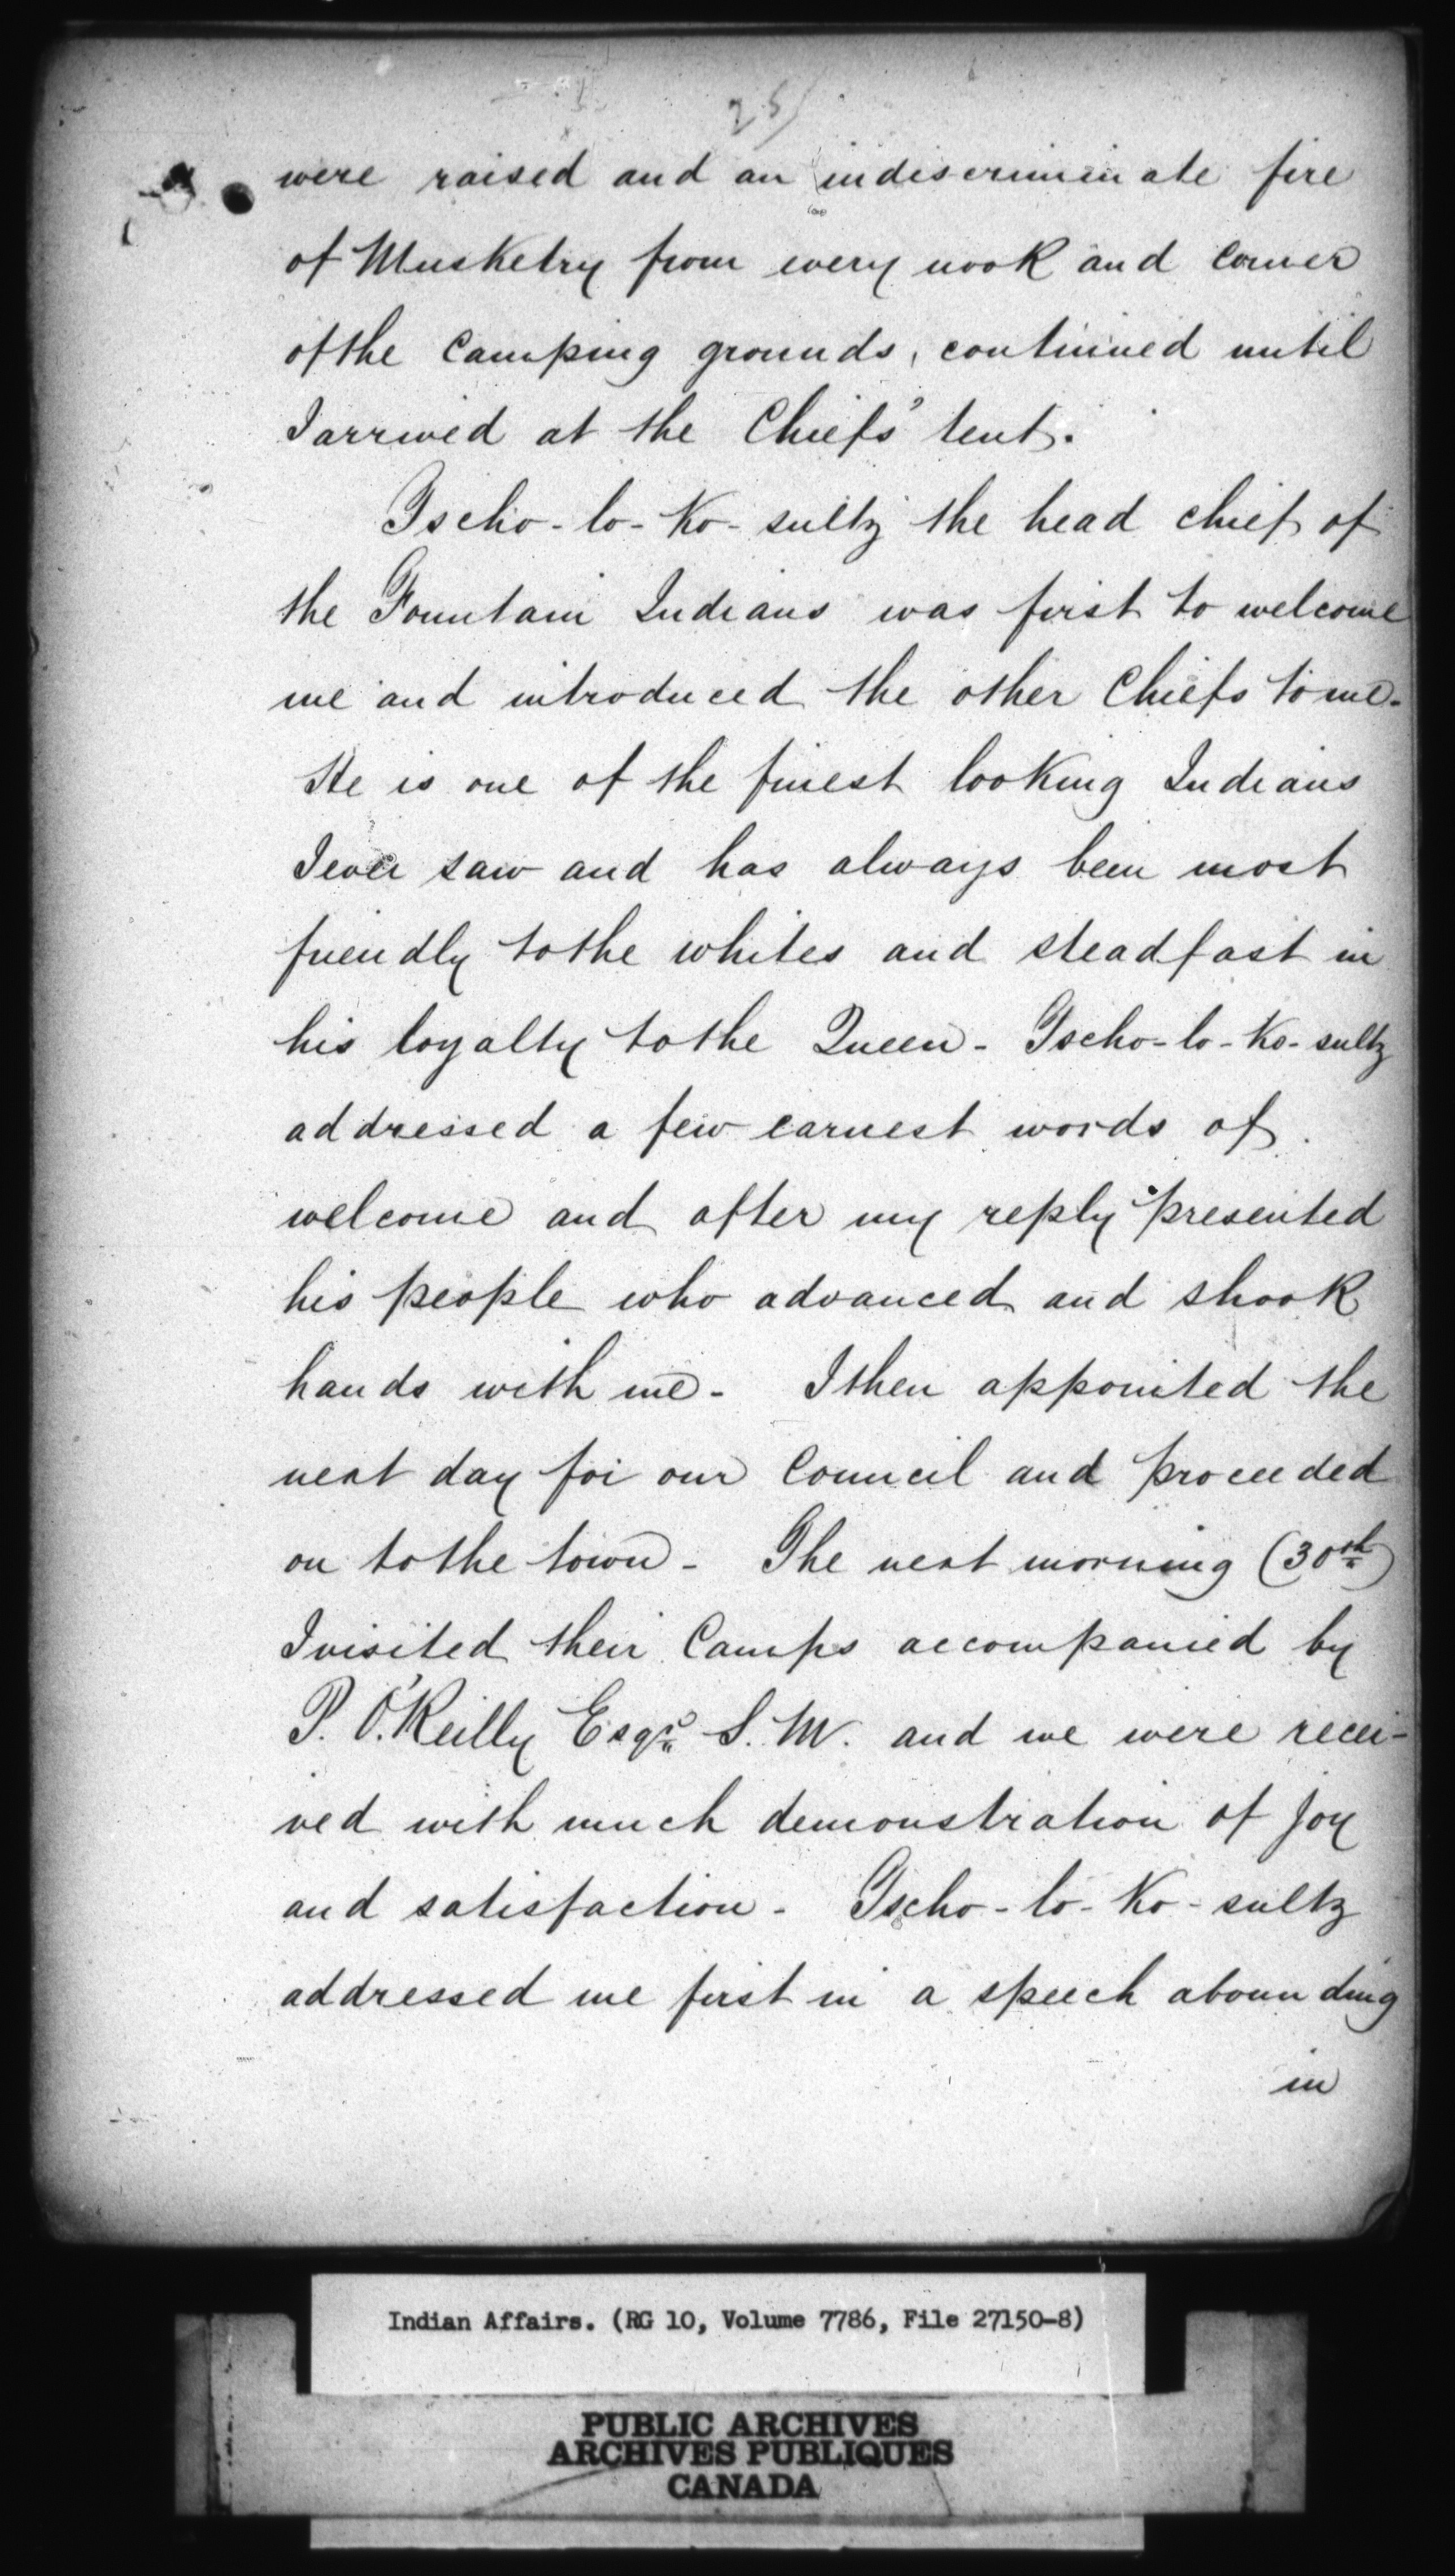 25/
were raised and an indiscriminate fire
of Musketry from every nook and corner
of the Camping grounds, continued until
I arrived at the Chiefs' tent.
Tscho-lo-Ko-sultz the head chief of
the Fountain Indians was first to welcome
me and introduced the other Chiefs to me-
He is one of the finest looking Indians
I ever saw and has always been most
friendly to the whites and steadfast in
his loyalty to the Queen - Tscho-lo-Ko-sultz
addressed a few earnest words of
welcome and after my reply presented
his people who advanced and shook
hands with me - I then appointed the
next day for our Council and proceeded
on to the town - The next morning (30th)
I visited their Camps accompanied by
P. O'Reilly Esqr. S. M. and we were recei-
ved with much demonstration of joy
and satisfaction - Tscho-lo-Ko-sultz
addressed me first in a speech abounding
in
Indian Affairs. (RG 10, Volume 7786, File 27150-8)
PUBLIC ARCHIVES
ARCHIVES PUBLIQUES
CANADA